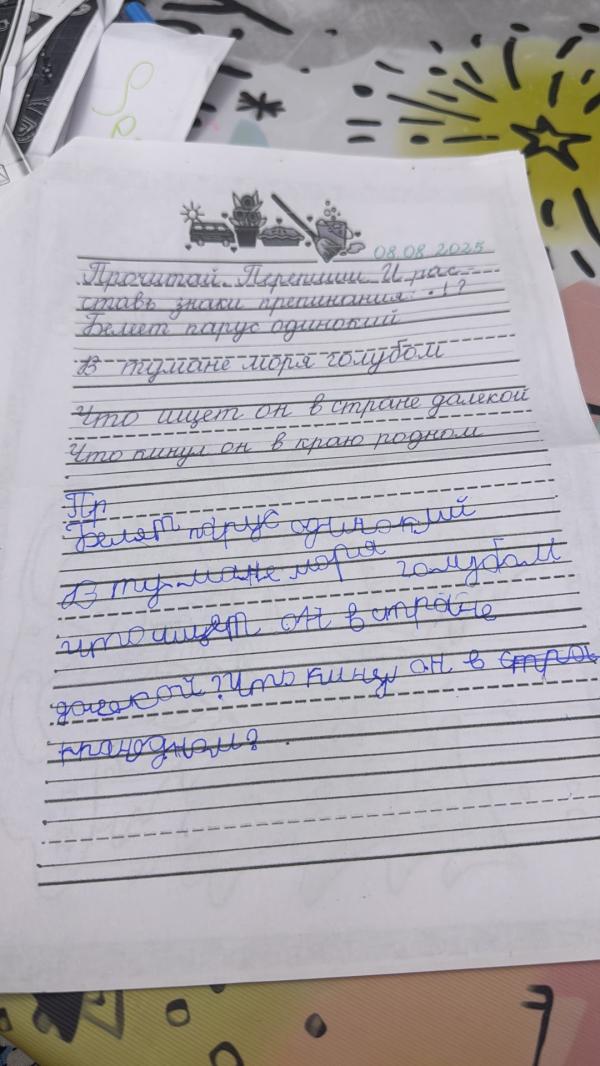 08.08.2025
Прочитай. Перепиши. И рас-
ставь знаки препинания: . ! ?
Белеет парус одинокий
В тумане моря голубом
Что ищет он в стране далекой
Что кинул он в краю родном
Пр
Белят парус одинокий
В тумане моря голубом
что ищет он в стране
далекой? Что кинул он в стра